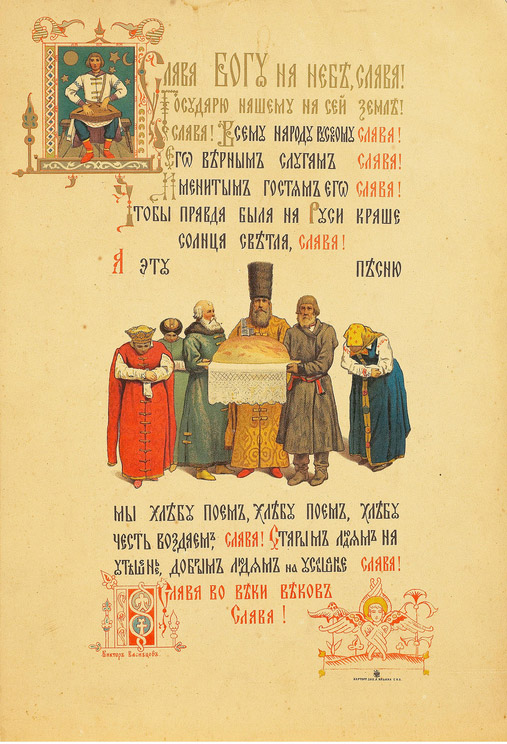 Слава Богѹ на небѣ, слава!
Государю нашему на сей землѣ!
Слава! Всему народу рускому слава!
Его вѣрнымъ слугамъ слава!
Именитымъ гостямъ его слава!
Чтобы правда была на Руси краше
солнца свѣтла, слава!
А эту пѣсню
мы хлѣбу поемъ, хлѣбу поемъ, хлѣбу
честь воздаемъ, слава! Старымъ людямъ на
утѣшенье, добрымъ людямъ на услышанье слава!
Слава во вѣки вѣковъ
Слава!
Викторъ Васнецовъ